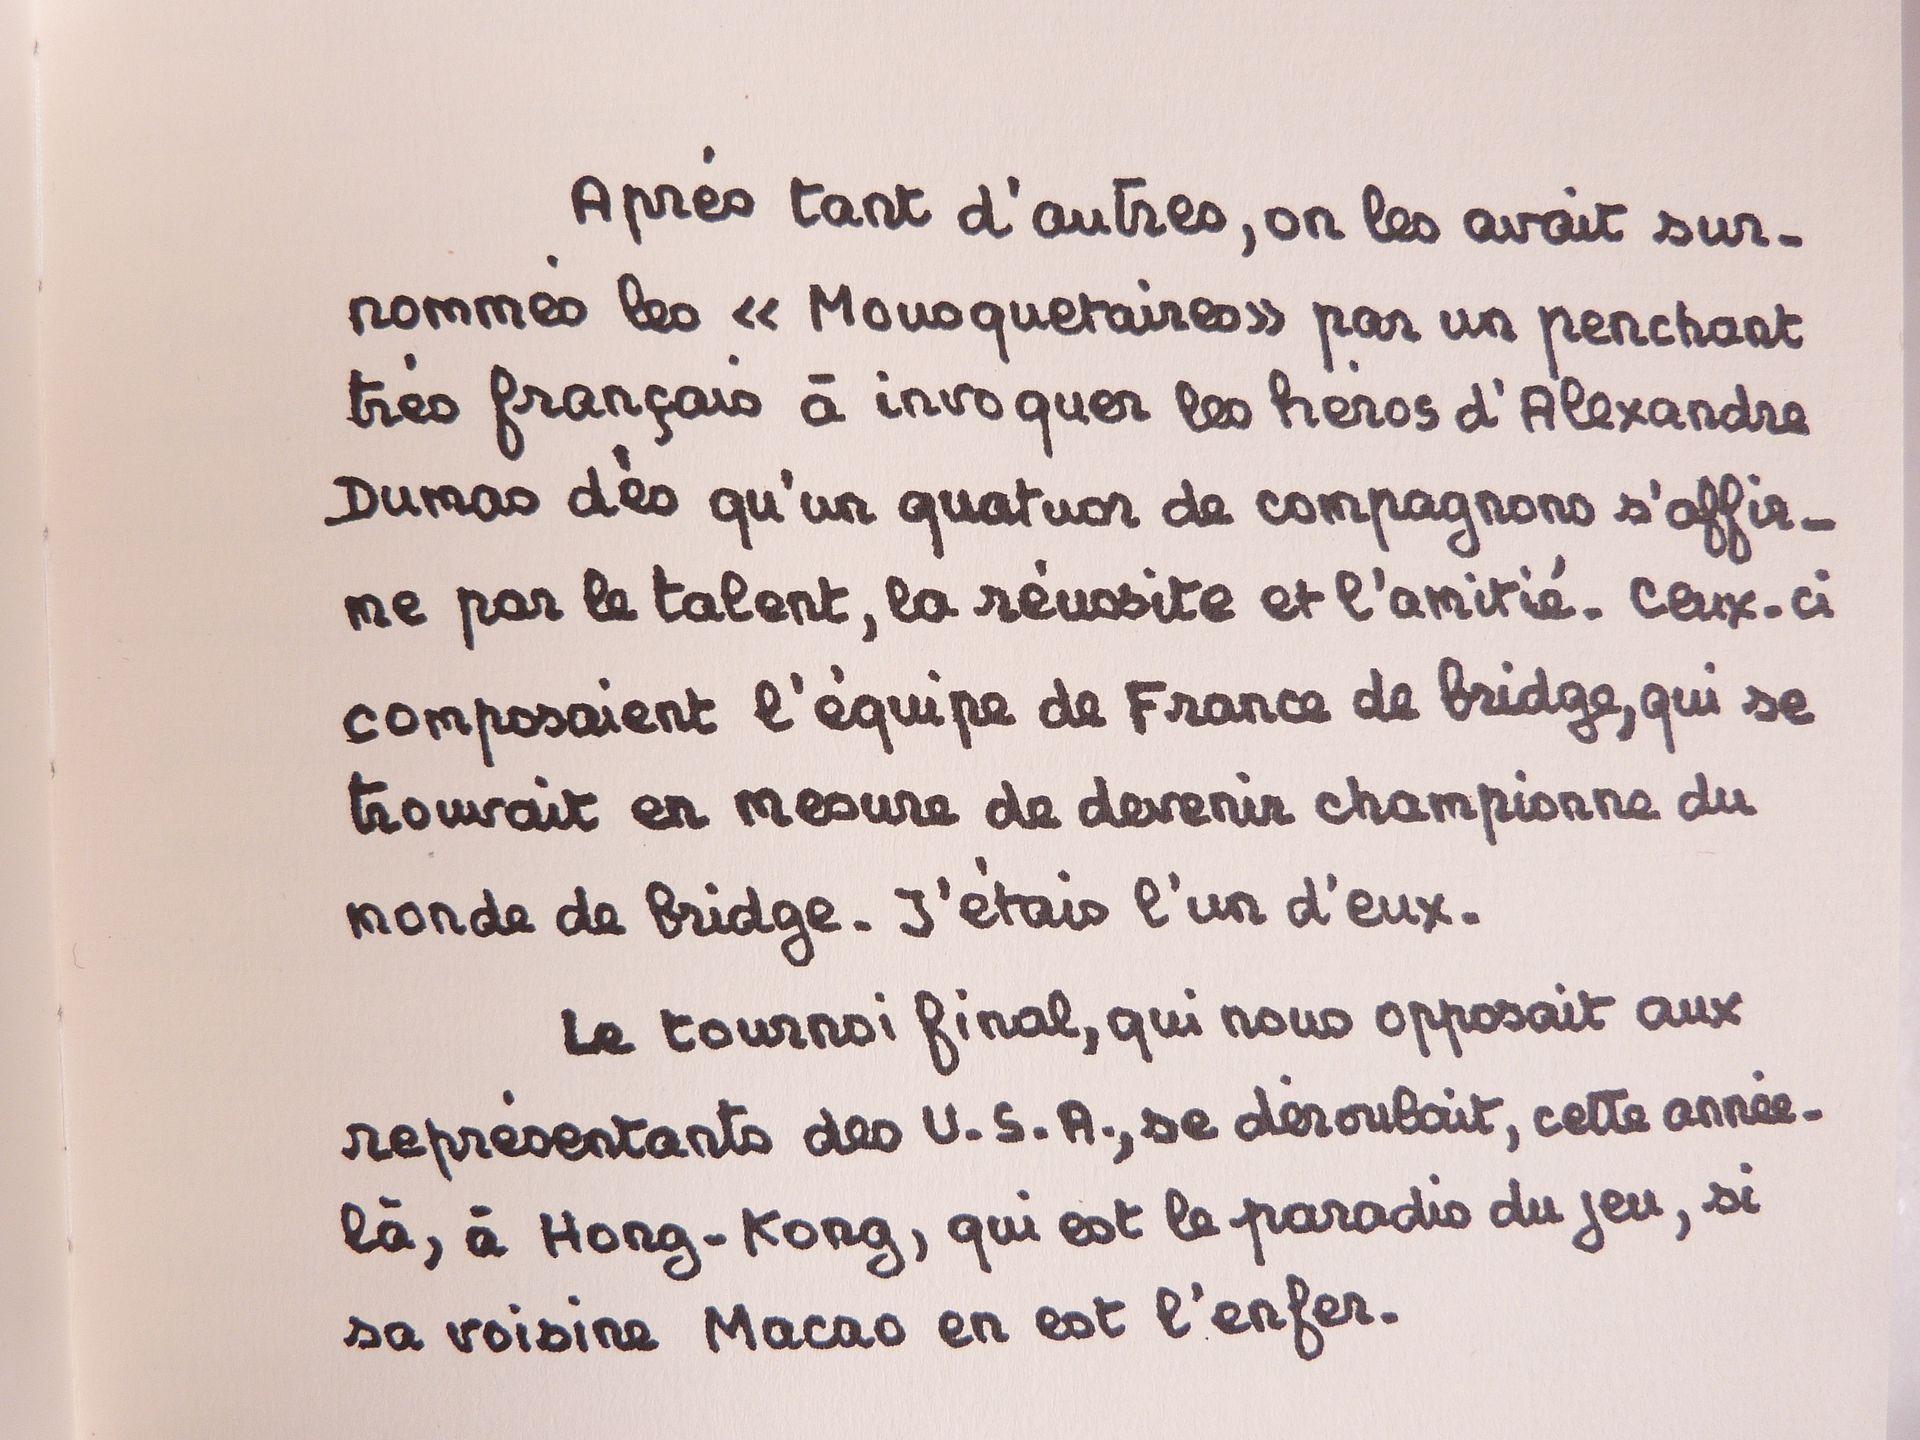 Après tant d'autres, on les avait sur-
nommés les « Mousquetaires» par un penchant
très français à invoquer les héros d'Alexandre
Dumas dès qu'un quatuor de compagnons s'affir-
me par le talent, la réussite et l'amitié. Ceux-ci
composaient l'équipe de France de bridge, qui se
trouvait en mesure de devenir championne du
monde de bridge. J'étais l'un d'eux.
Le tournoi final, qui nous opposait aux
représentants des U.S.A., se déroulait, cette année-
là, à Hong-Kong, qui est le paradis du jeu, si
sa voisine Macao en est l'enfer.